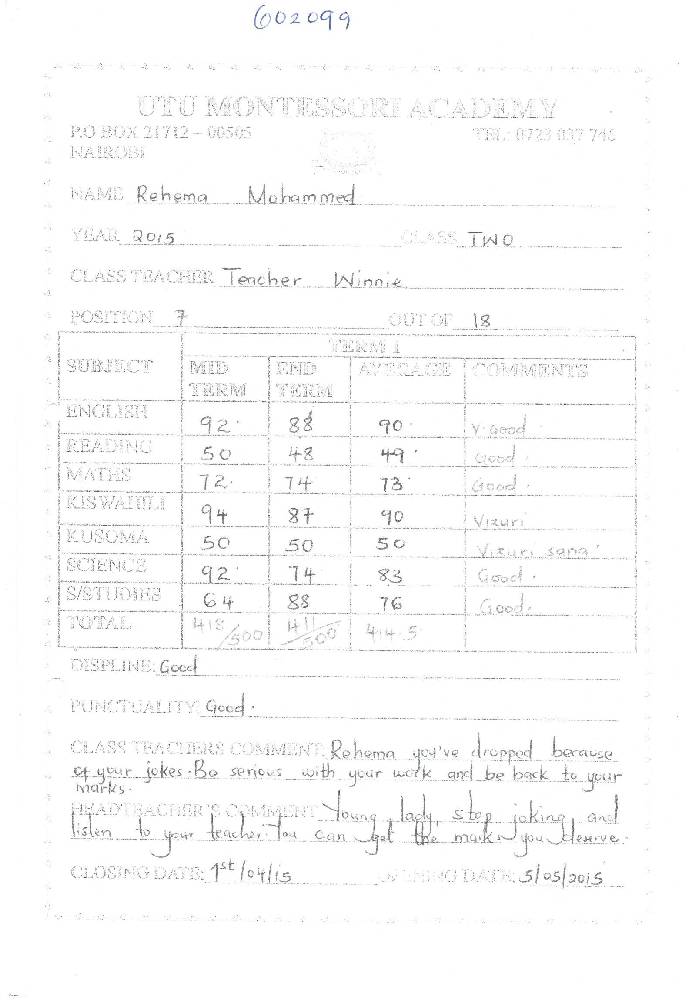 602099
UTU MONTESSORI ACADEMY
P.O BOX 21712 – 00505 TEL: 0723 037 748
NAIROBI
NAME Rehema Mohammed
YEAR 2015 CLASS TWO
CLASS TEACHER Teacher Winnie
POSITION 7 OUT OF 18
TERM 1
SUBJECT MID TERM END TERM AVERAGE COMMENTS
ENGLISH 92 88 90 V. Good
READING 50 48 49 Good
MATHS 72 74 73 Good
KISWAHILI 94 87 90 Vizuri
KUSOMA 50 50 50 Vizuri sana
SCIENCE 92 74 83 Good
S/STUDIES 64 88 76 Good
TOTAL 418/500 411/500 414.5
DISPLINE: Good
PUNCTUALITY Good.
CLASS TEACHERS COMMENT: Rehema you've dropped because
of your jokes. Be serious with your work and be back to your
marks.
HEADTEACHER'S COMMENT Young lady, stop joking and
listen to your teacher. You can get the marks you deserve.
CLOSING DATE: 1st/04/15 DATE: 5/05/2015